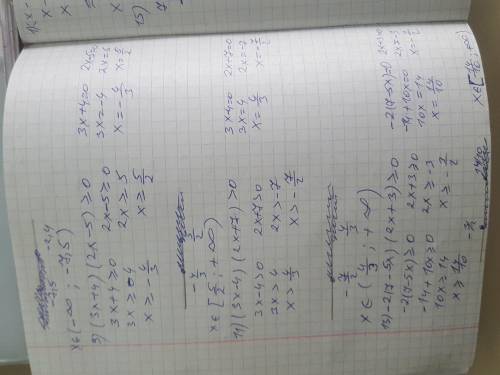 -2,5 -2,4
x∈(-∞ ; -2,5)
9) (3x+4)(2x-5)≥0
3x+4≥0 2x-5≥0
3x≥-4 2x≥5
x≥-4/3 x≥5/2
3x+4=0 2x-5=0
3x=-4 2x=5
x=-4/3 x=5/2
-4/3 5/2
x∈[5/2 ; +∞)
11) (3x-4)(2x+7)>0
3x-4>0 2x+7>0
3x>4 2x>-7
x>4/3 x>-7/2
3x-4=0 2x+7=0
3x=4 2x=-7
x=4/3 x=-7/2
-7/2 4/3
x∈(4/3 ; +∞)
13) -2(7-5x)(2x+3)≥0
-2(7-5x)≥0 2x+3≥0
-14+10x≥0 2x≥-3
10x≥14 x≥-3/2
x≥14/10
-2(7-5x)=0 2x+3=0
-14+10x=0 2x=-3
10x=14 x=-3/2
x=14/10
15)